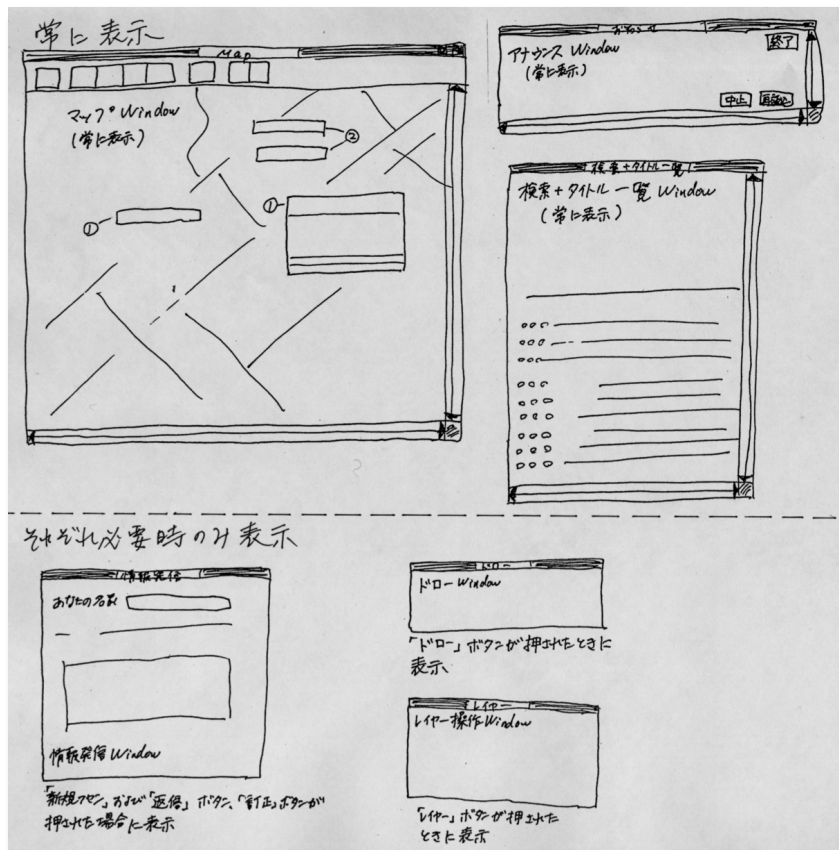 常に表示
Map
マップ Window
(常に表示)
②
①
①
アナウンス Window
(常に表示)
終了
中止
検索+タイトル一覧
検索+タイトル一覧 Window
(常に表示)
それぞれ必要時のみ表示
情報発信
あなたの名前
情報発信 Window
「新規フセン」および「返信」ボタン、「訂正」ボタンが
押された場合に表示
ドロー
ドロー Window
「ドロー」ボタンが押されたときに
表示、
レイヤー
レイヤー操作 Window
「レイヤー」ボタンが押された
ときに表示